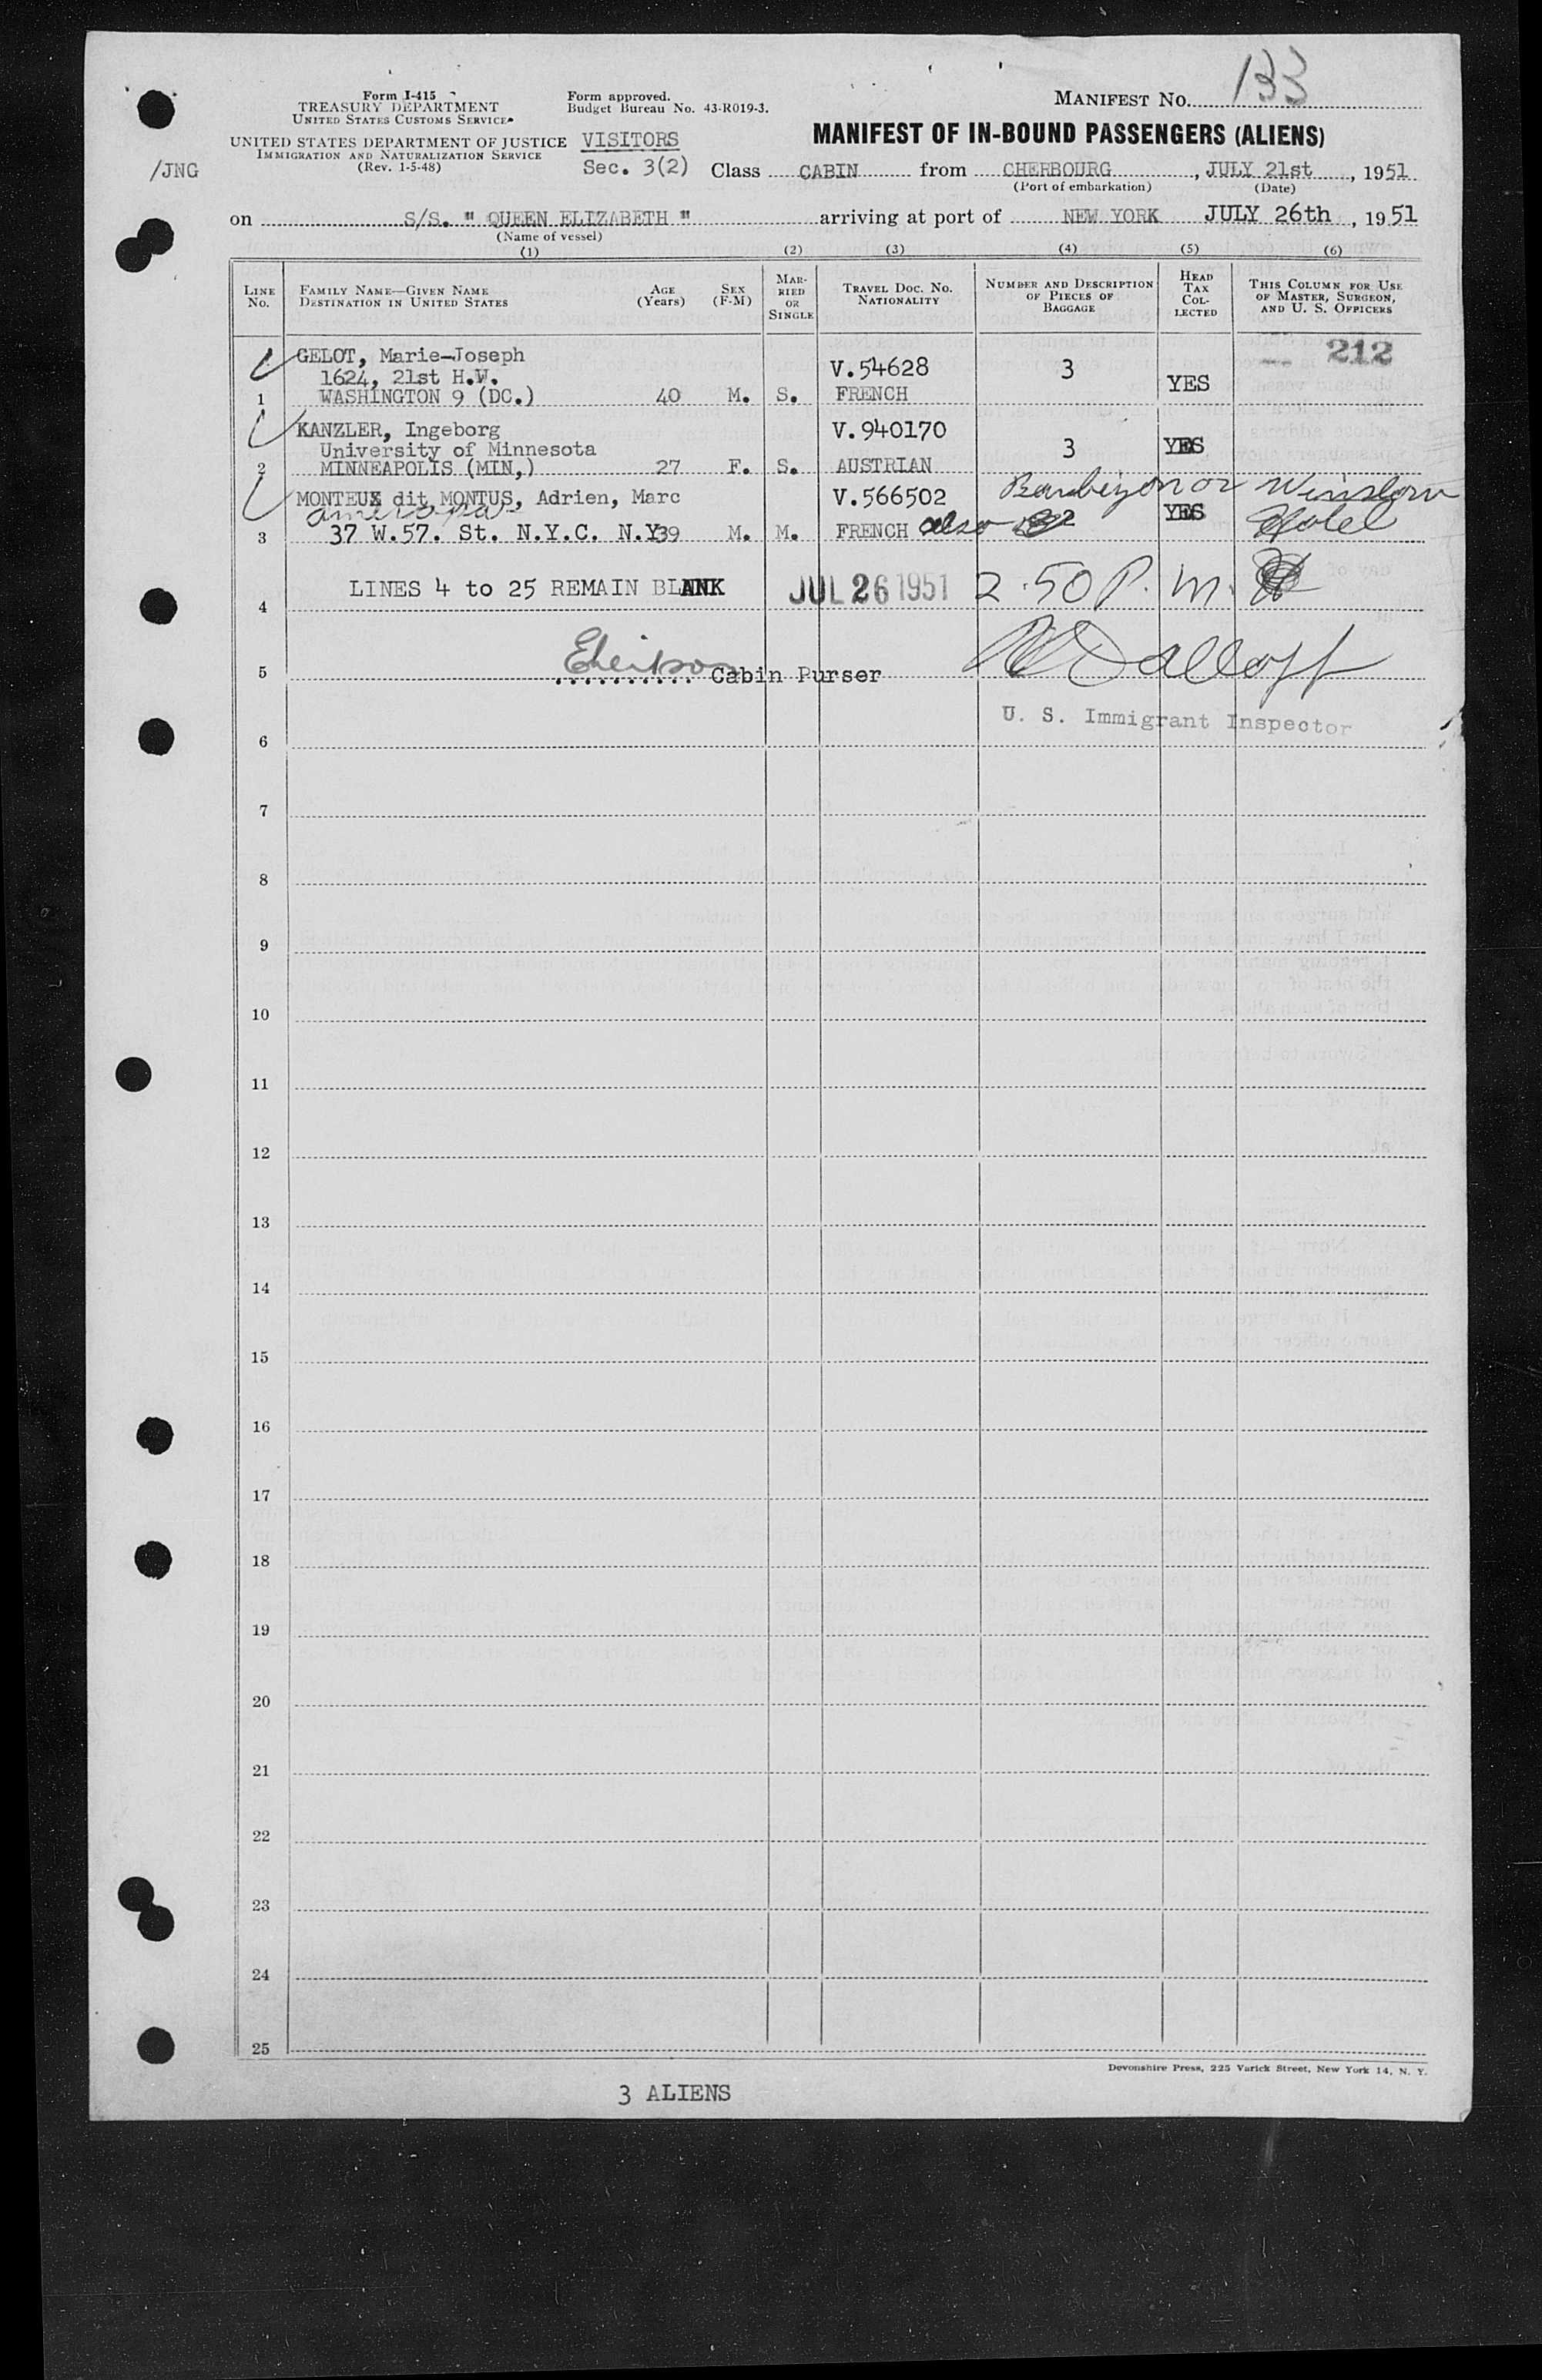 Form I-415
TREASURY DEPARTMENT
UNITED STATES CUSTOMS SERVICE
Form approved.
Budget Bureau No. 43-R019-3.
MANIFEST NO. 133
UNITED STATES DEPARTMENT OF JUSTICE
IMMIGRATION AND NATURALIZATION SERVICE
(Rev. 1-5-48)
/JNG
VISITORS
Sec. 3(2)
MANIFEST OF IN-BOUND PASSENGERS (ALIENS)
Class CABIN from CHERBOURG, JULY 21st, 1951
(Port of embarkation) (Date)
on S/S. " QUEEN ELIZABETH " arriving at port of NEW YORK JULY 26th, 1951
(Name of vessel)
(1) (2) (3) (4) (5) (6)
LINE No.
FAMILY NAME—GIVEN NAME
DESTINATION IN UNITED STATES
AGE (Years)
SEX (F-M)
MARRIED OR SINGLE
TRAVEL DOC. NO.
NATIONALITY
NUMBER AND DESCRIPTION OF PIECES OF BAGGAGE
HEAD TAX COLLECTED
THIS COLUMN FOR USE OF MASTER, SURGEON, AND U. S. OFFICERS
212
GELOT, Marie-Joseph V.54628 3
1624, 21st H.W. YES
1 WASHINGTON 9 (DC.) 40 M. S. FRENCH
KANZLER, Ingeborg V.940170
University of Minnesota 3 YES
2 MINNEAPOLIS (MIN,) 27 F. S. AUSTRIAN
MONTEUX dit MONTUS, Adrien, Marc V.566502 Barbizon or Winslow
YES Hotel
3 37 W.57. St. N.Y.C. N.Y 39 M. M. FRENCH also
LINES 4 to 25 REMAIN BLANK JUL 26 1951 2.50 P.m.
4
5 .......... Cabin Purser
U. S. Immigrant Inspector
6
7
8
9
10
11
12
13
14
15
16
17
18
19
20
21
22
23
24
25
Devonshire Press, 225 Varick Street, New York 14, N. Y.
3 ALIENS